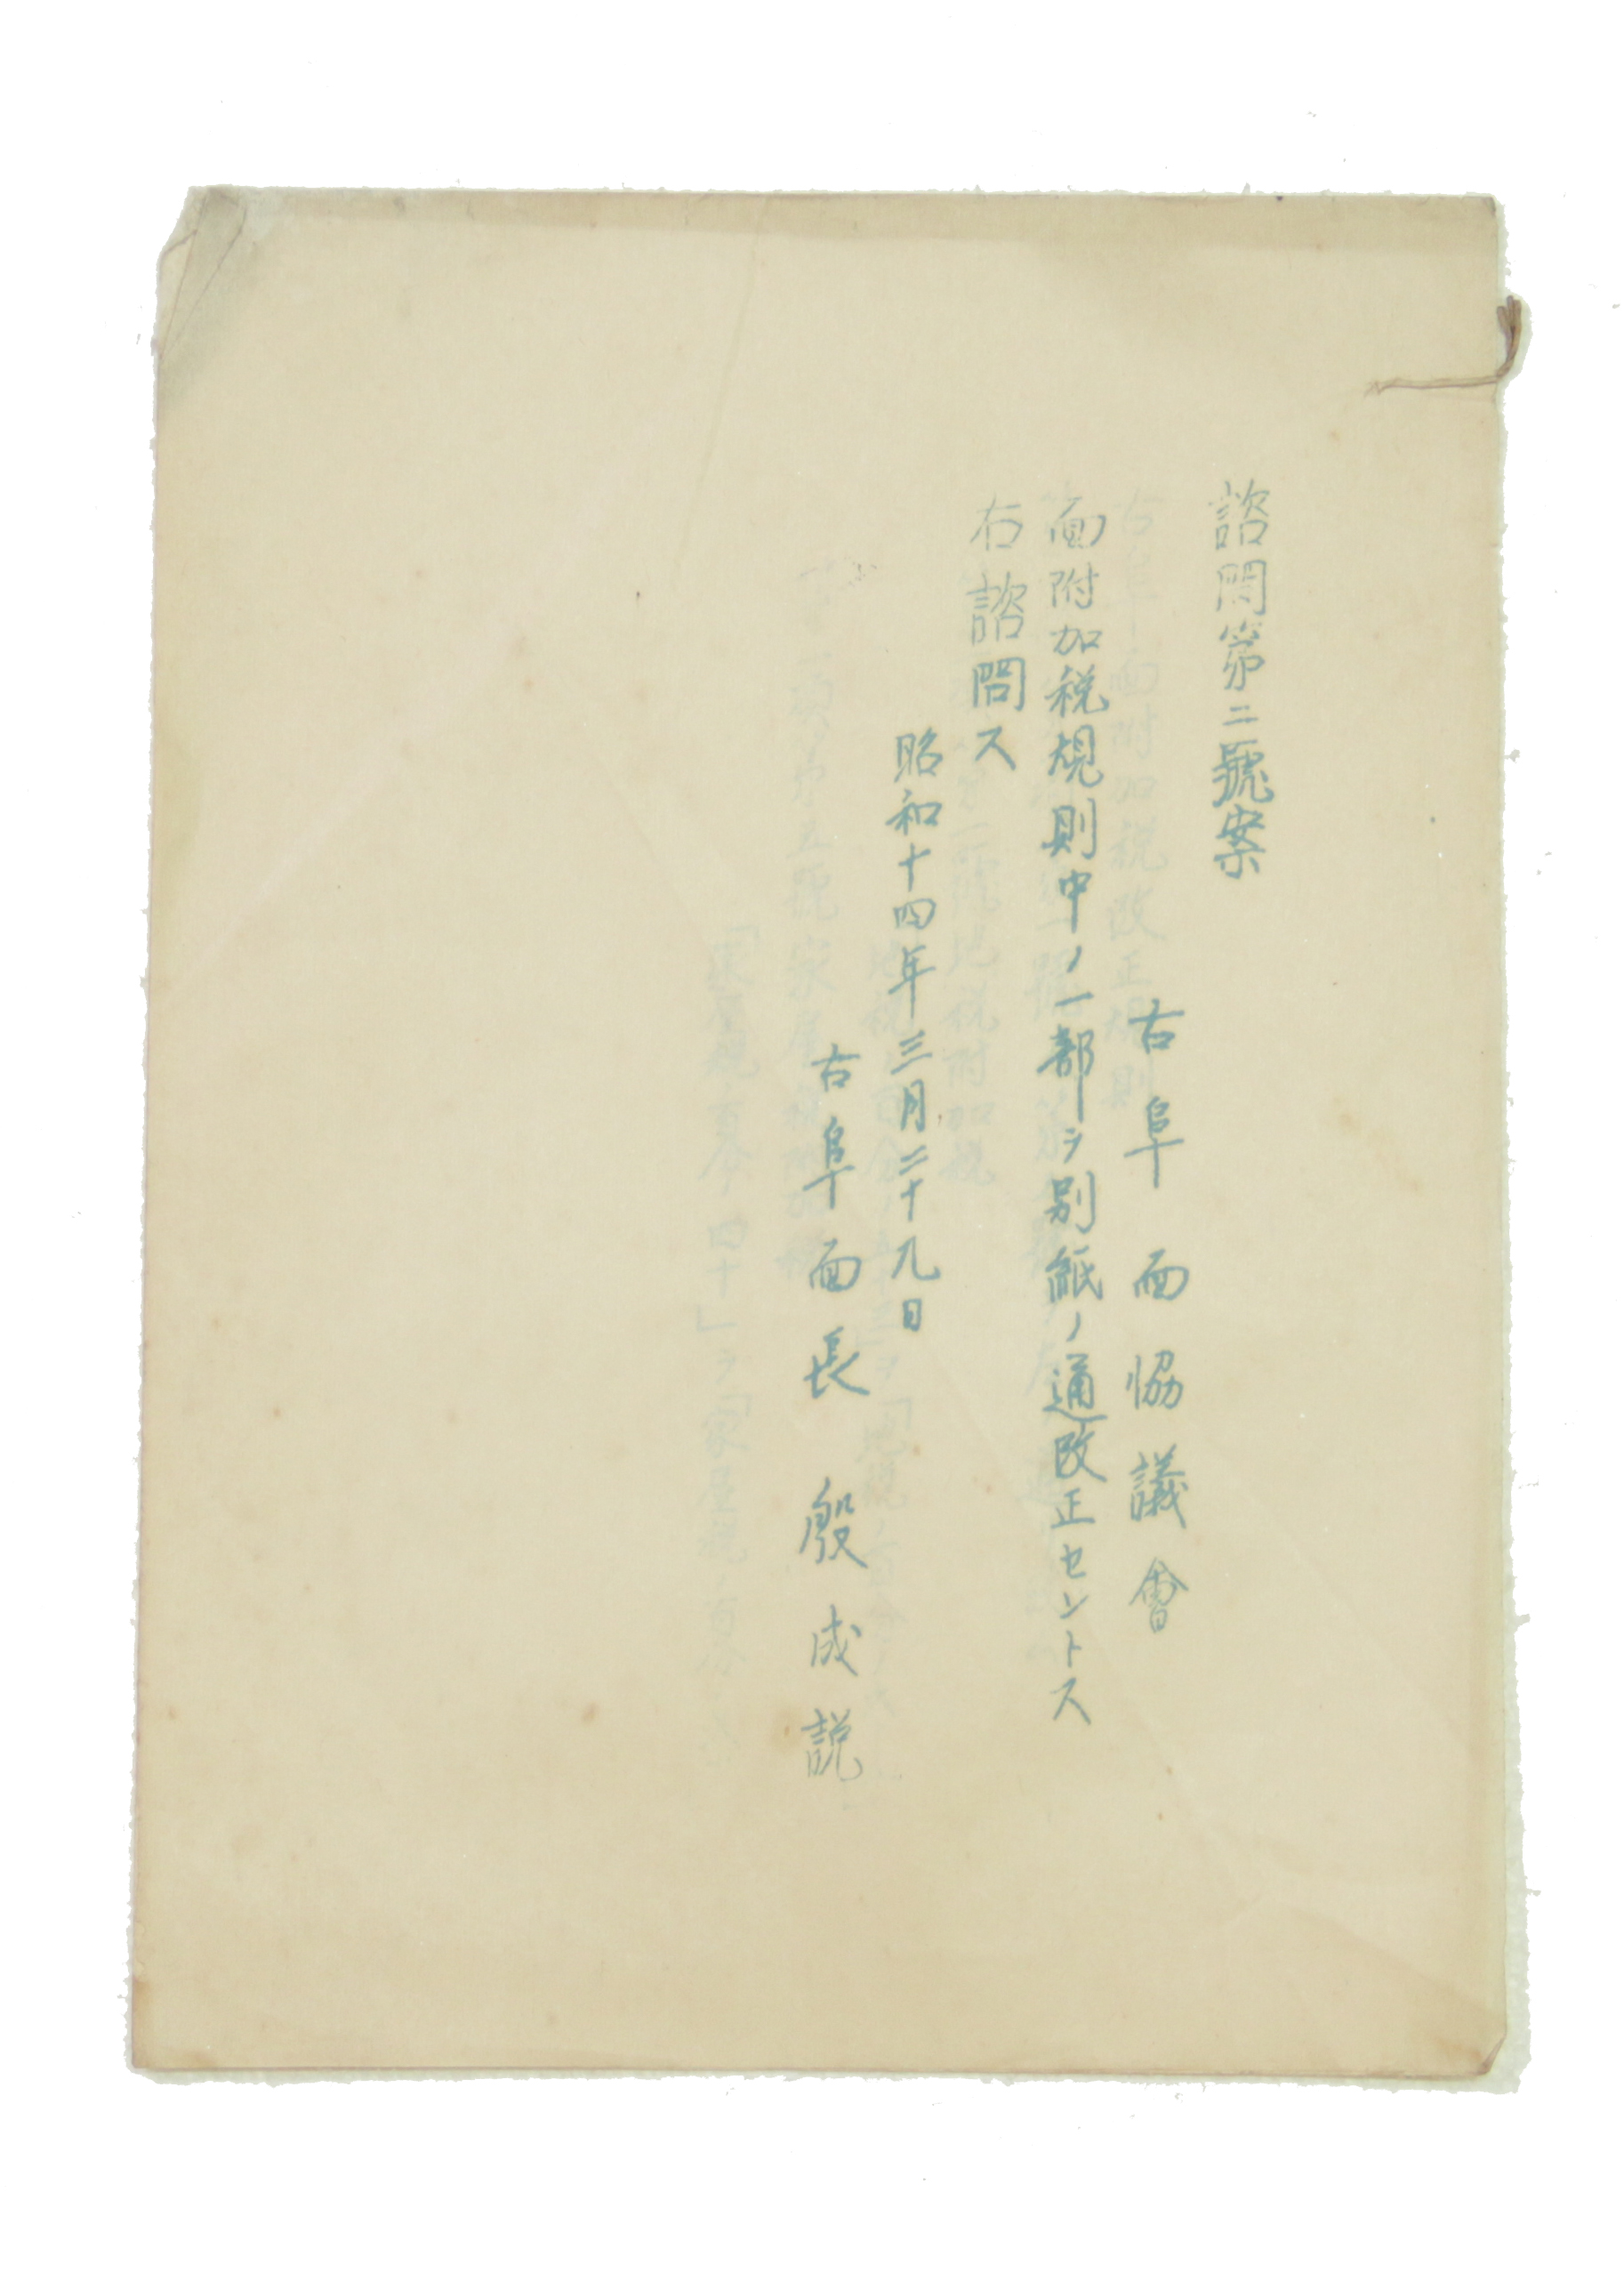 諮問第二號案
古阜面協議會
面附加税規則中ノ一部ヲ別紙ノ通改正セントス
右諮問ス
昭和十四年三月二十九日
古阜面長 殷成説